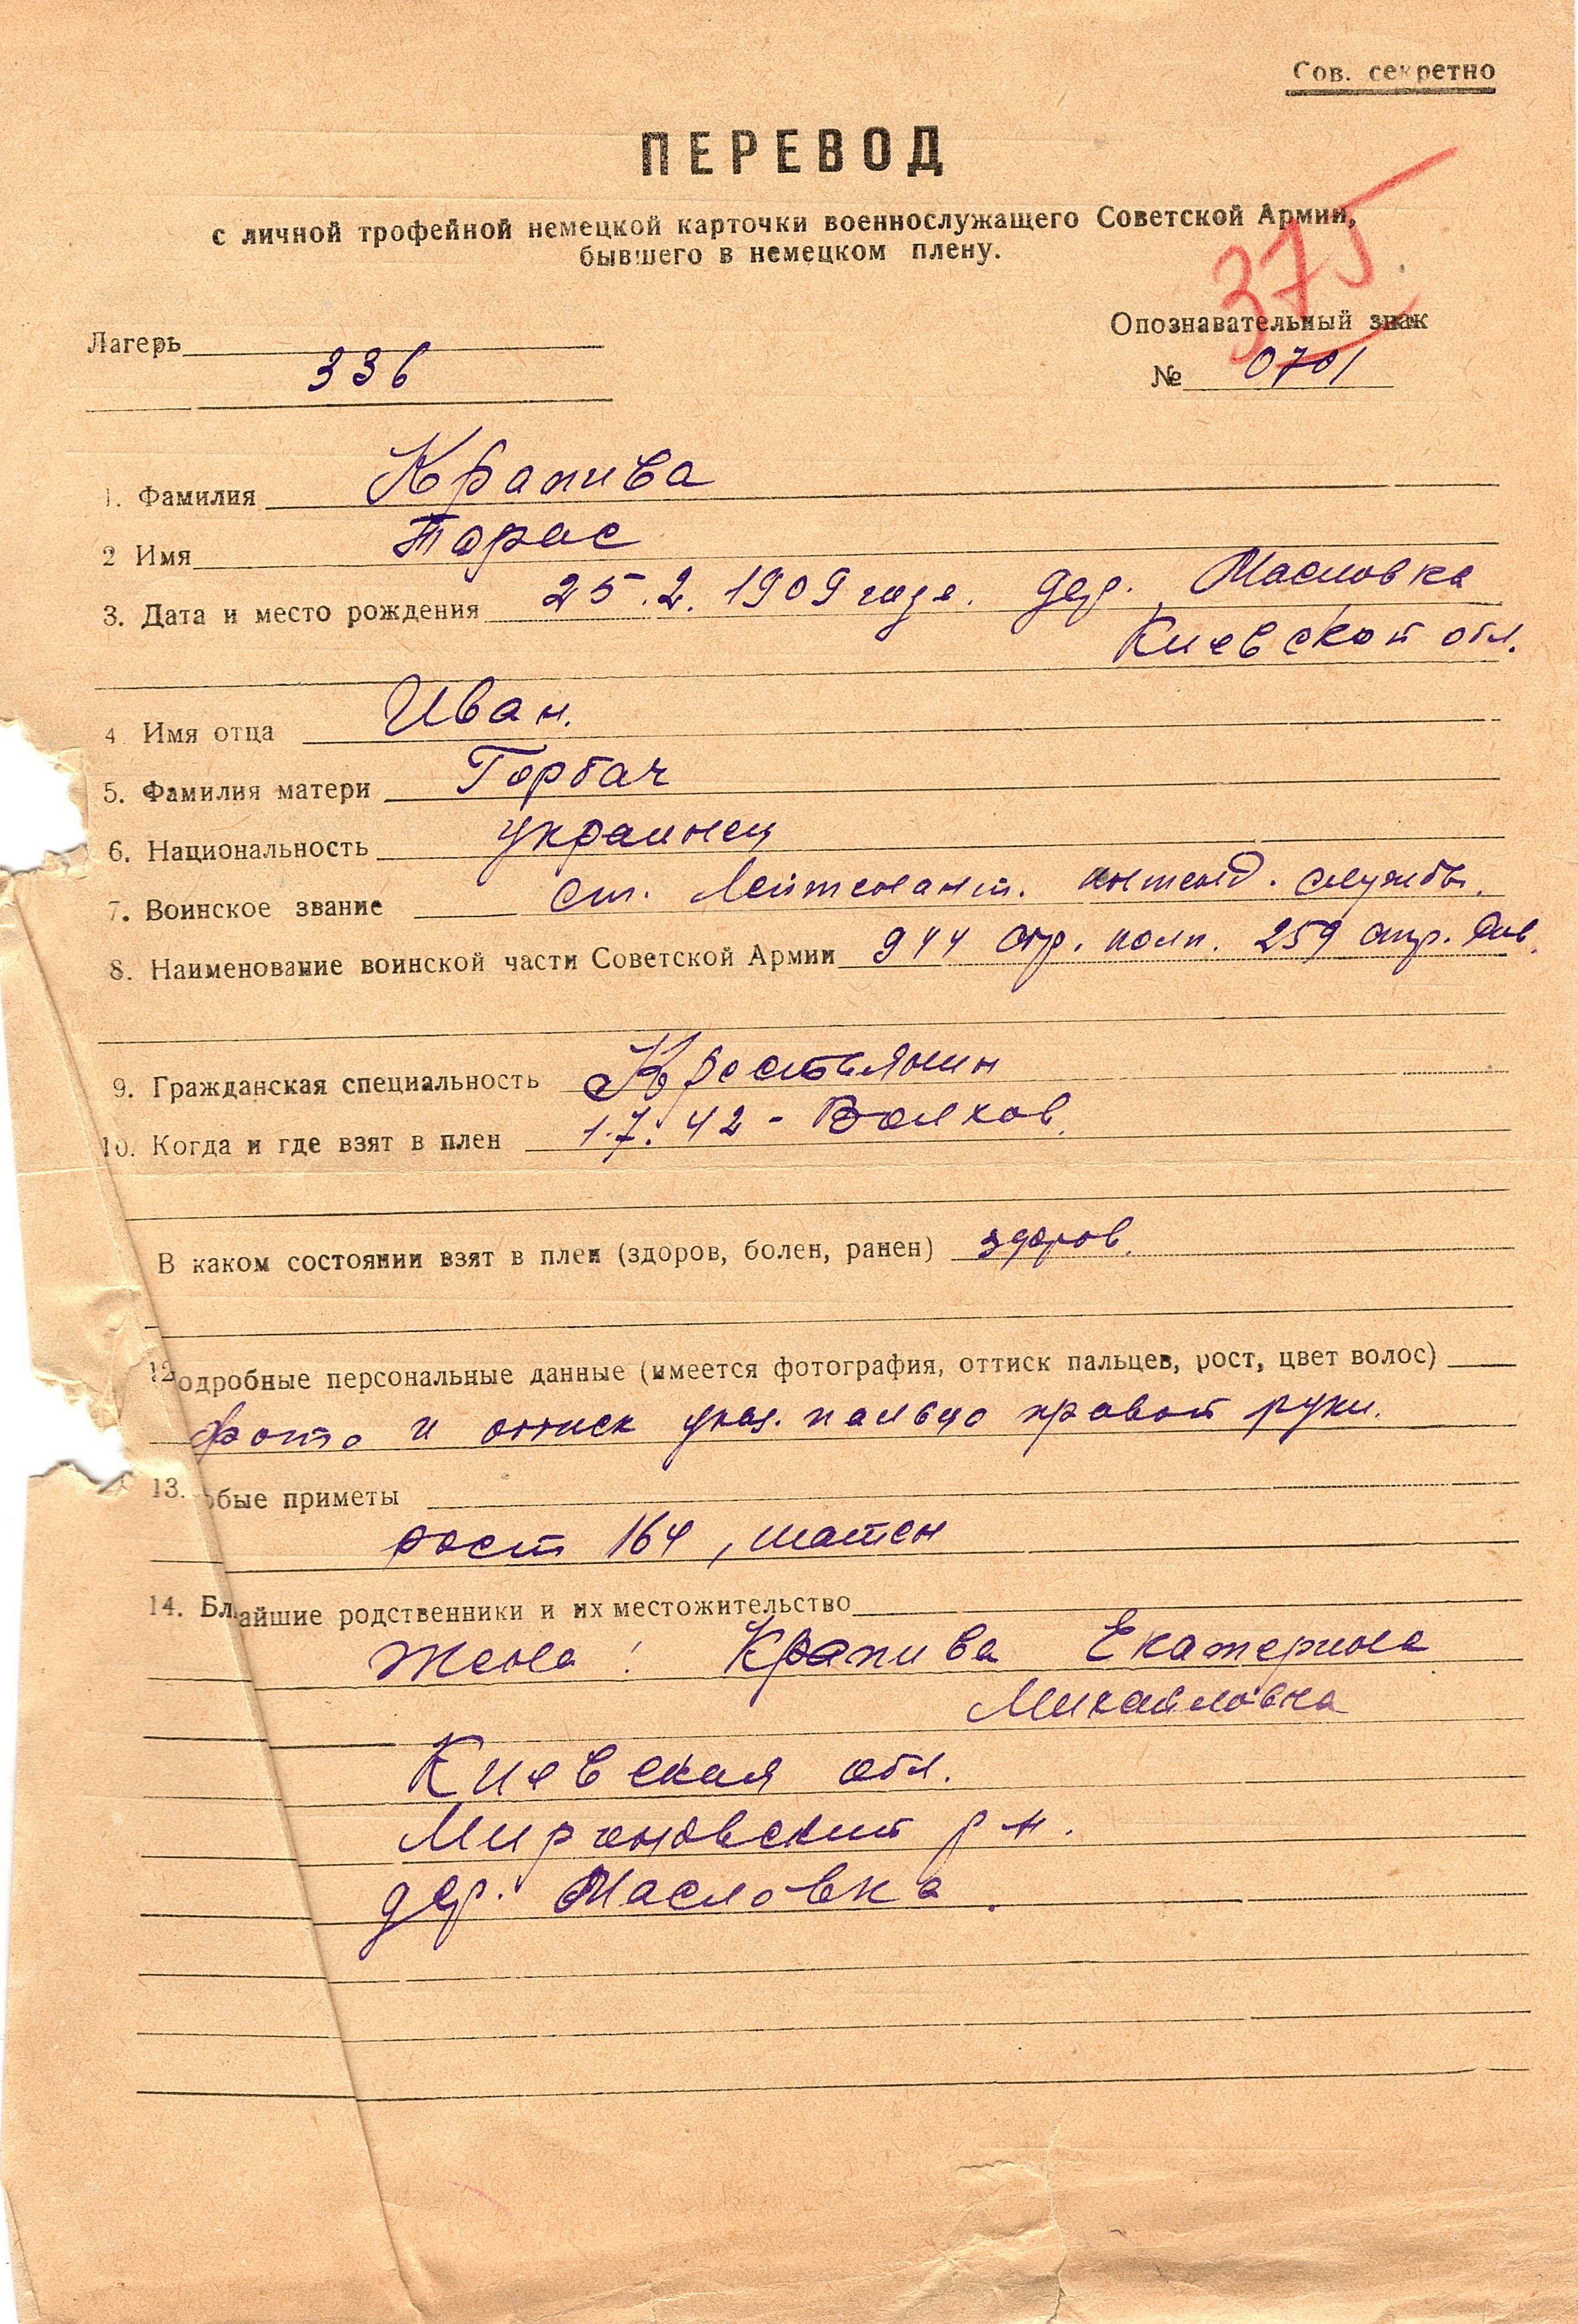 Сов. секретно
ПЕРЕВОД
с личной трофейной немецкой карточки военнослужащего Советской Армии,
бывшего в немецком плену.
375
Лагерь 336
Опознавательный знак
№ 0701
1. Фамилия Крапива
2 Имя Тарас
3. Дата и место рождения 25.2.1909 года. дер. Масловка
Киевской обл.
4 Имя отца Иван.
5. Фамилия матери Горбач
6. Национальность украинец
7. Воинское звание ст. Лейтенант. интенд. службы.
8. Наименование воинской части Советской Армии 944 стр. полк. 259 стр. див.
9. Гражданская специальность Крестьянин
10. Когда и где взят в плен 1.7.42 - Волхов.
В каком состоянии взят в плен (здоров, болен, ранен) здоров.
12 одробные персональные данные (имеется фотография, оттиск пальцев, рост, цвет волос)
фото и оттиск указ. пальца правой руки.
13. обые приметы
рост 164, шатен
14. Бл айшие родственники и их местожительство
Жена: Крапива Екатерина
Михайловна
Киевская обл.
Мироновский р-н.
дер. Масловка.